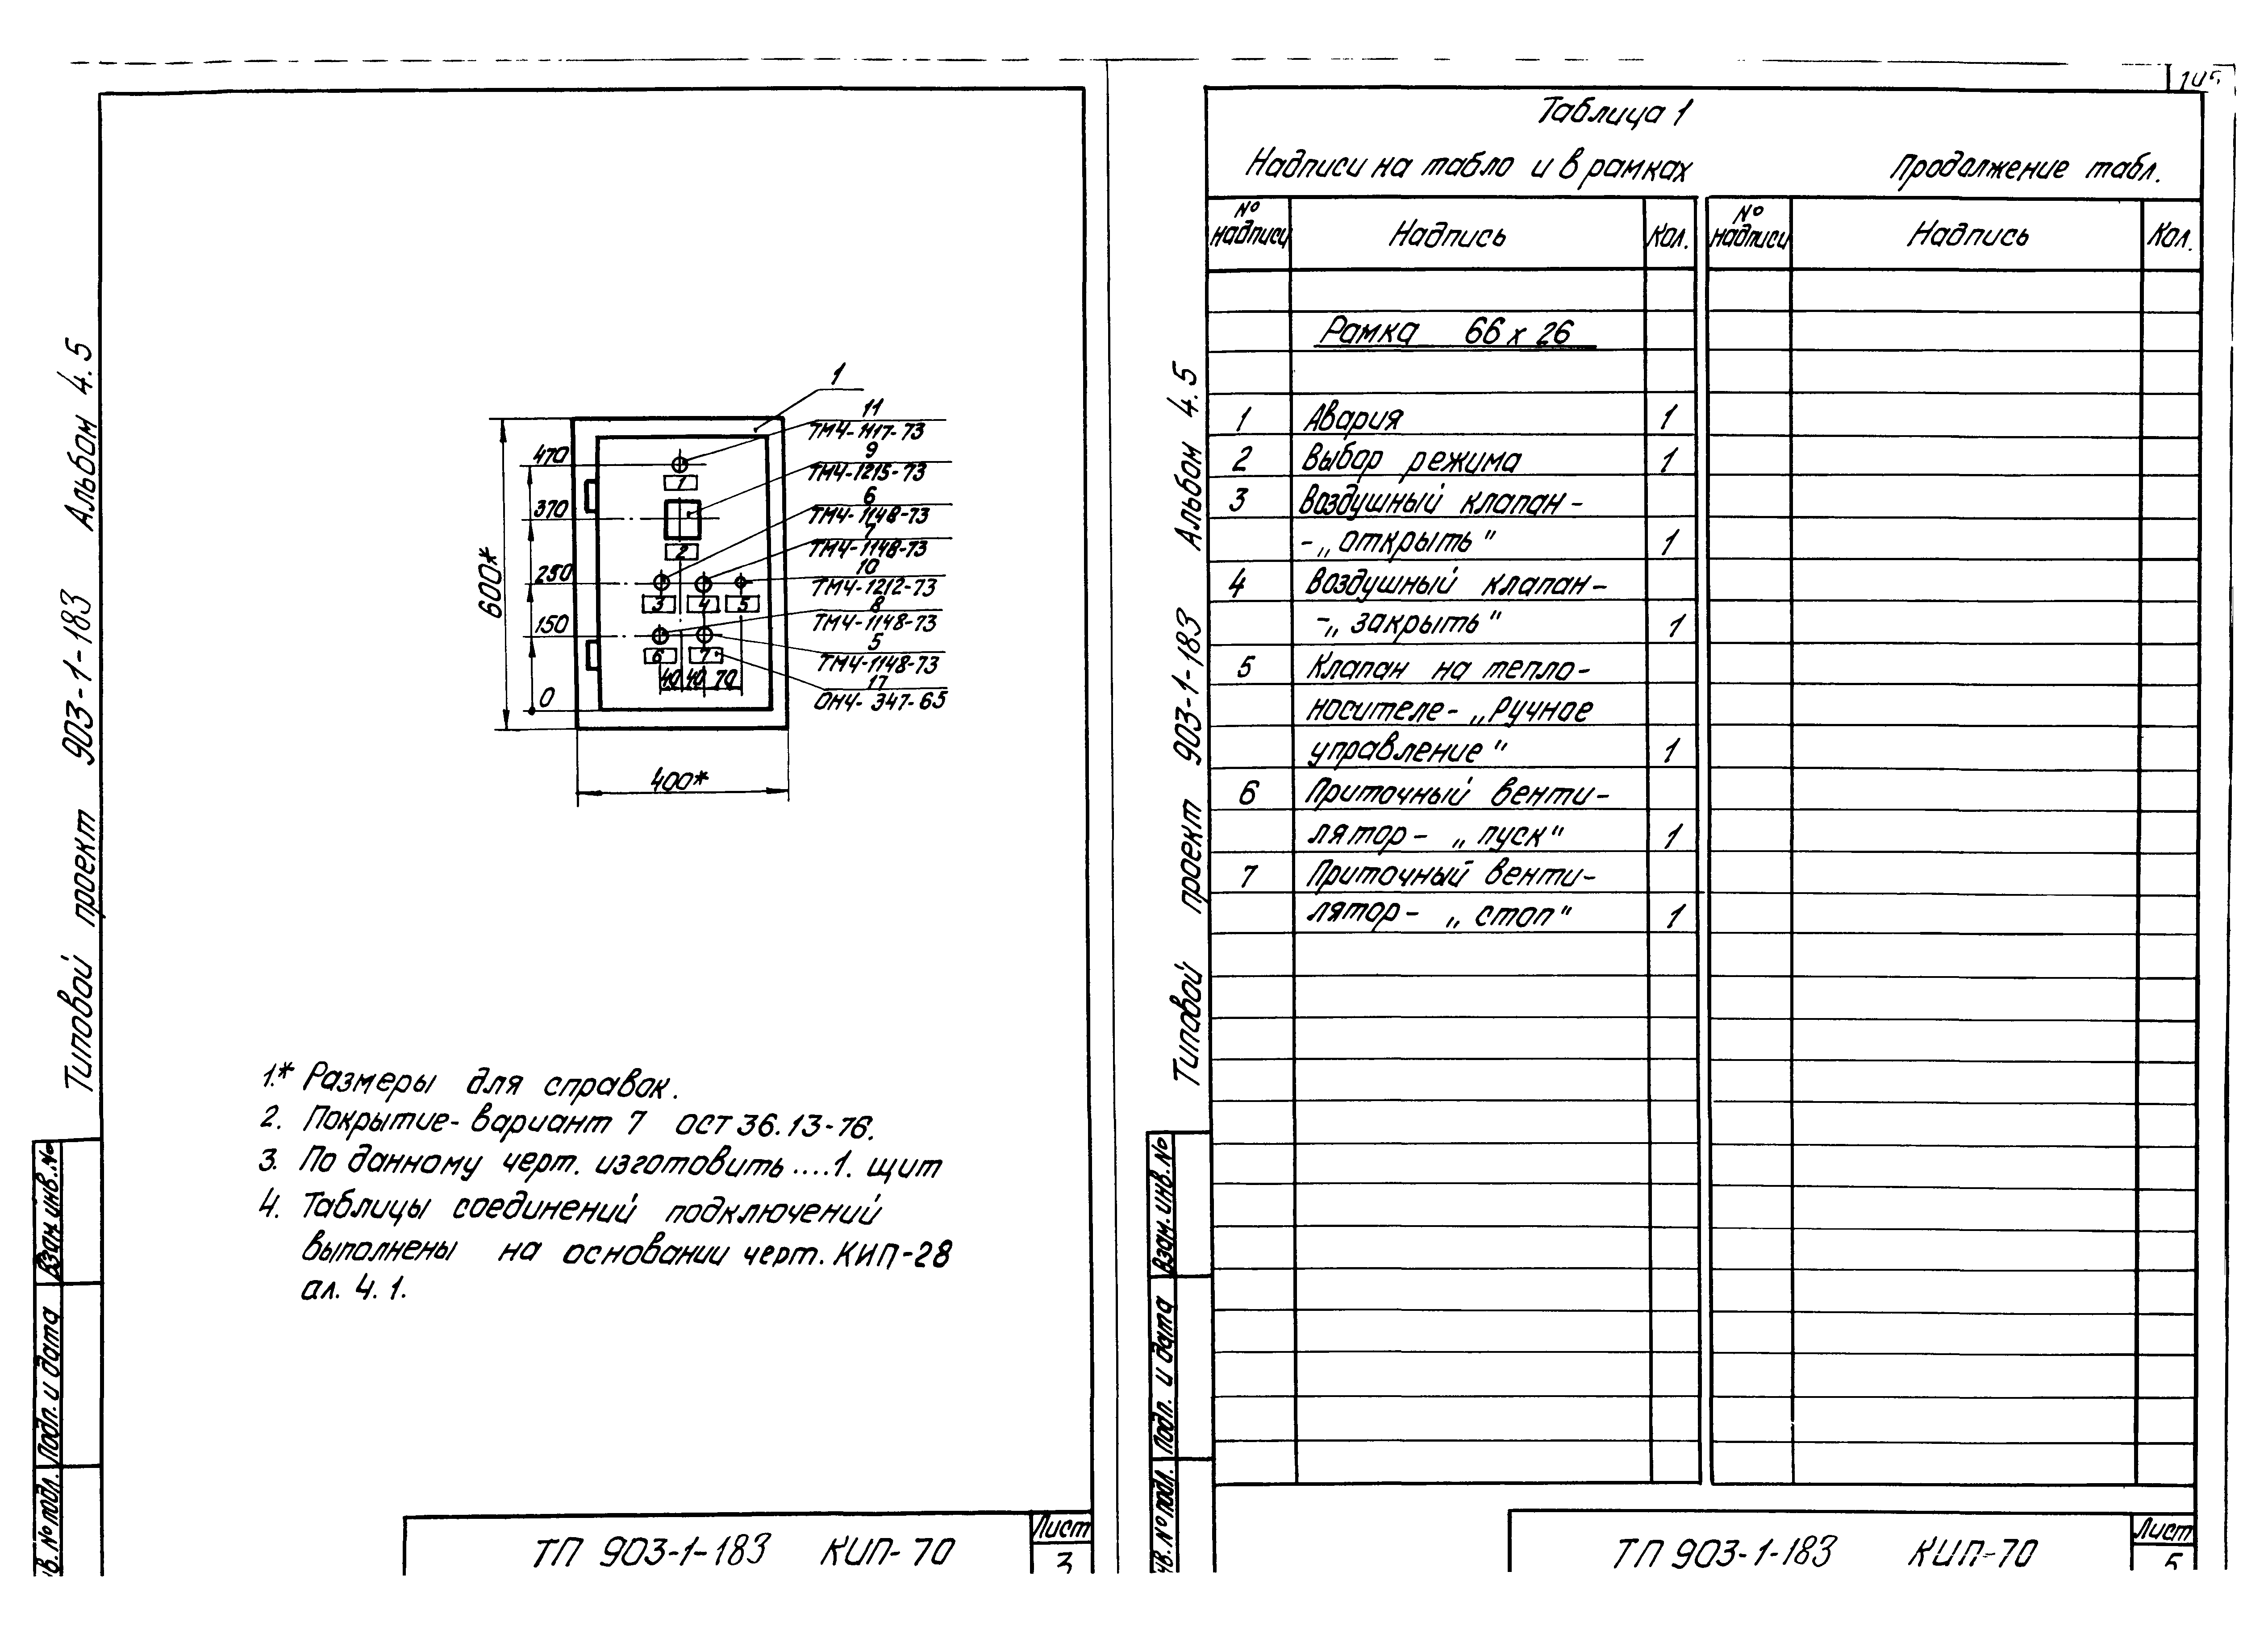 Типовой проект 903-1-183 Альбом 4.5
1
11
ТМ4-1117-73
9
ТМ4-1215-73
6
ТМ4-1148-73
7
ТМ4-1148-73
10
ТМ4-1212-73
8
ТМ4-1148-73
5
ТМ4-1148-73
17
ОН4-347-65
600*
470
370
250
150
0
1
2
3 4 5
6 7
40 40 70
400*
1.* Размеры для справок.
2. Покрытие - вариант 7 ост 36.13-76.
3. По данному черт. изготовить....1. щит
4. Таблицы соединений подключений
выполнены на основании черт. КИП-28
ал. 4.1.
Взам. инв. №
Подп. и дата
№ подл.
ТП 903-1-183 КИП-70
Лист
3
Типовой проект 903-1-183 Альбом 4.5
Таблица 1
Надписи на табло и в рамках
Продолжение табл.
№ надписи Надпись Кол. № надписи Надпись Кол.
Рамка 66 х 26
1 Авария 1
2 Выбор режима 1
3 Воздушный клапан -
- „ открыть “ 1
4 Воздушный клапан -
- „ закрыть “ 1
5 Клапан на тепло-
носителе - „ Ручное
управление “ 1
6 Приточный венти-
лятор - „ пуск “ 1
7 Приточный венти-
лятор - „ стоп “ 1
Взам. инв. №
Подп. и дата
№ подл.
ТП 903-1-183 КИП-70
Лист
5